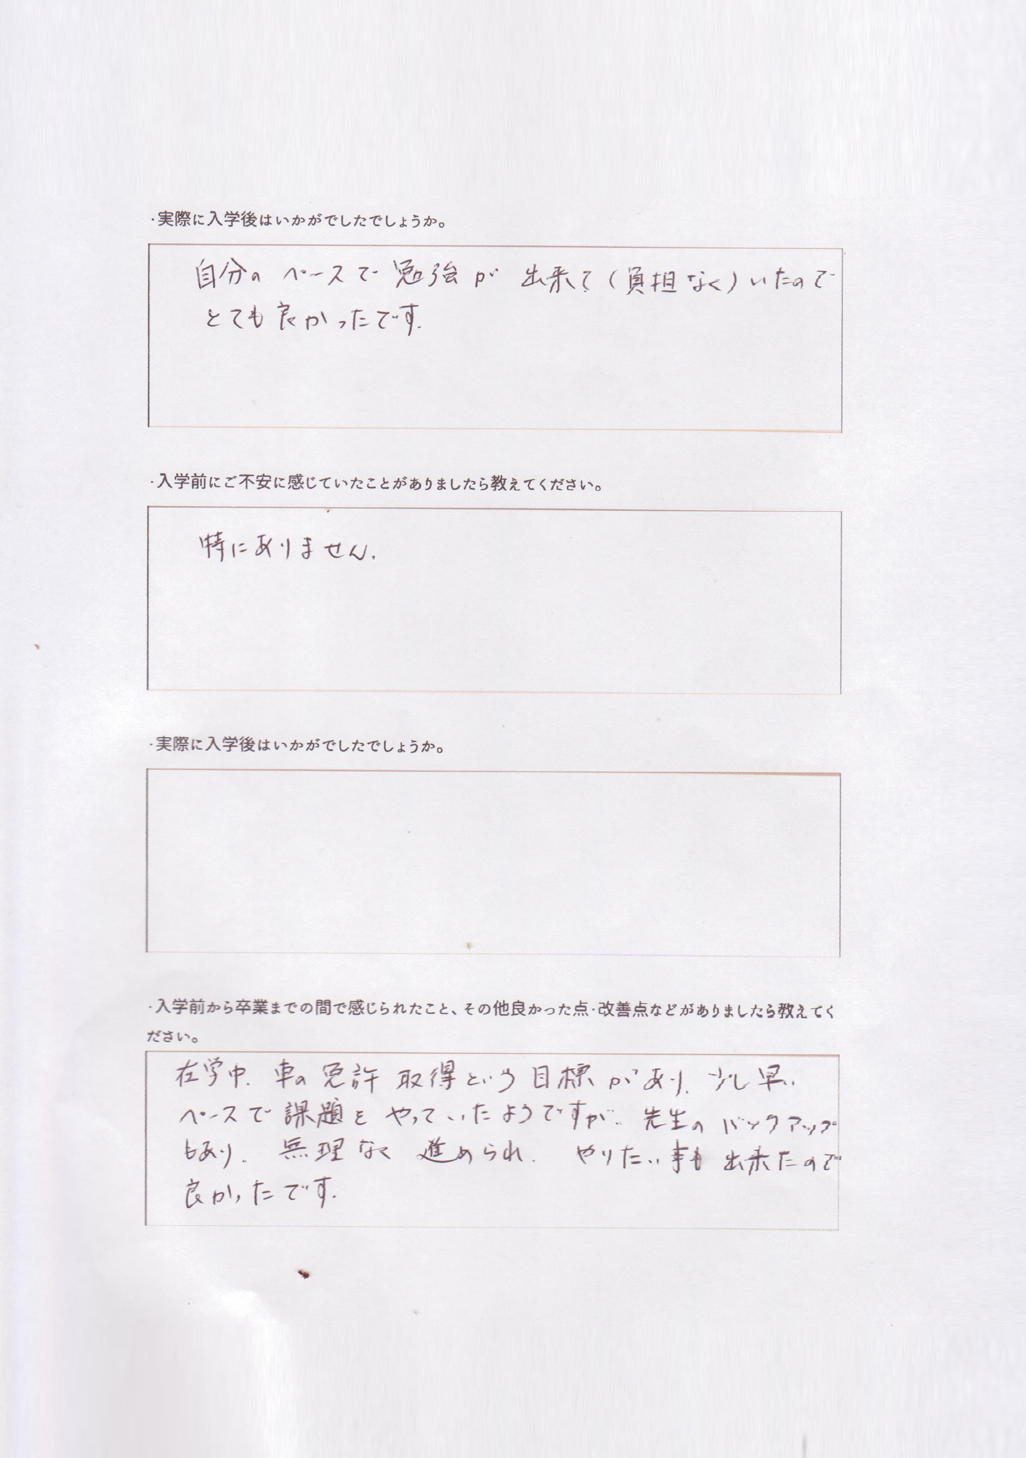 ・実際に入学後はいかがでしたでしょうか。
自分のペースで勉強が出来て(負担なく)いたので
とても良かったです.
・入学前にご不安に感じていたことがありましたら教えてください。
特にありません.
・実際に入学後はいかがでしたでしょうか。
・入学前から卒業までの間で感じられたこと、その他良かった点・改善点などがありましたら教えてく
ださい。
在学中、車の免許取得という目標があり、少し早い
ペースで課題をやっていたようですが、先生のバックアップ
もあり、無理なく進められ、やりたい事も出来たので
良かったです.